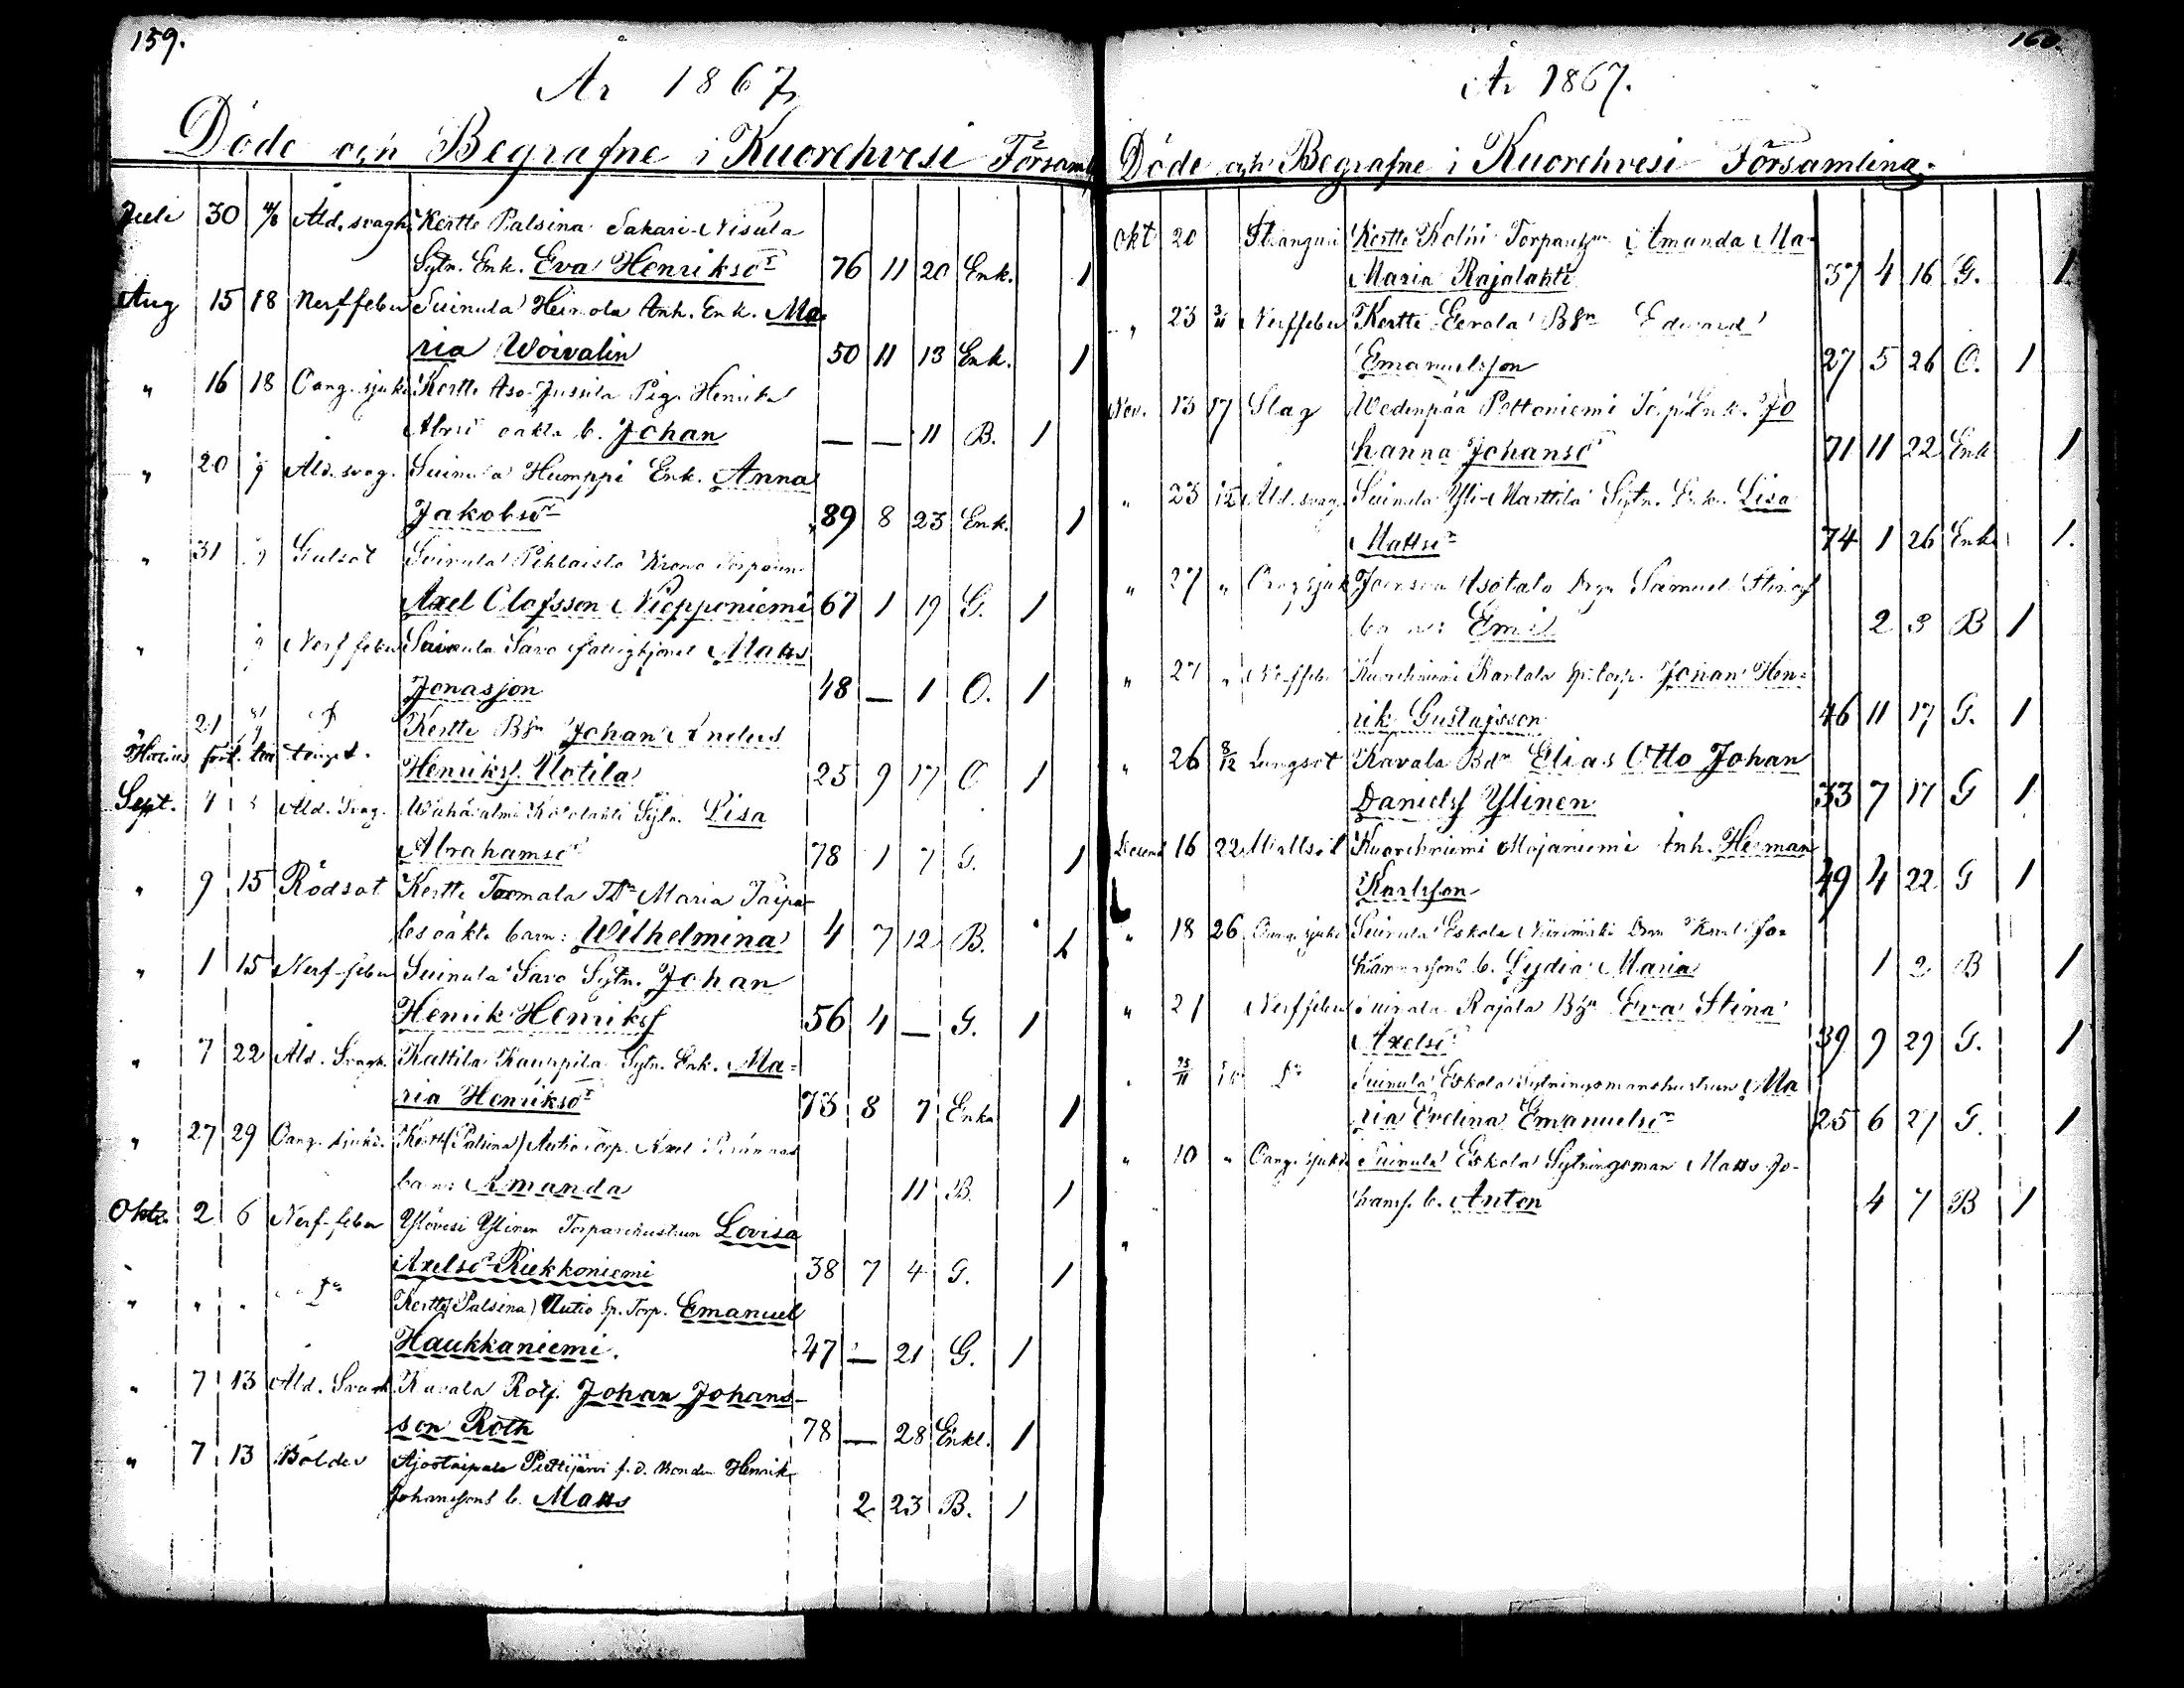 159.
År 1867,
Döde och Begrafne i Kuorehvesi Församl
Juli 30 4/8 Ald. svagh. Kertte Palsina Sakari-Nisula
Sytn. Enk. Eva Henriksdr 76 11 20 Enk. 1
Aug 15 18 Nerffeber Suinula Heinola Inh. Enk. Ma-
ria Woivalin 50 11 13 Enk. 1
" 16 18 Oang. sjukd. Kertte Aso-Jussila Pig. Henrika
oäkta b. Johan — — 11 B. 1
" 20 Ald. svag. Suinula Humppi Enk. Anna
Jakobsdr 89 8 23 Enk. 1
" 31 Gulsot Suinula Pihlaisto Krono Torparen
Axel Olofsson Niepponiemi 67 1 19 G. 1
" Nerffeber Suinula Savo fattighjonet Matts
Jonasson 48 — 1 O. 1
21 Kertte Bsn Johan Anders
Henriksf. Uotila 25 9 17 O 1
Sept. 4 Ald. Svag. Sytn. Lisa
Abrahamsdr 78 1 7 G. 1
" 9 15 Rödsot Kertte Tormala Maria Taipa-
les oäkta barn: Wilhelmina 4 7 12 B. 1
" 1 15 Nerf-feber Suinula Savo Sytn. Johan
Henrik Henriksf 56 4 — G. 1
" 7 22 Ald. Svagh. Kattila Kauppila Sytn. Enk. Ma-
ria Henriksdr 73 8 7 Enka 1
" 27 29 Oang. sjukd. Kertte (Palsina) Autio Torp. Axel
barn: Amanda 11 B. 1
Oktr. 2 6 Nerf-feber Ylövesi Ylinen Torparehustrun Lovisa
Axelsdr Riekkoniemi 38 7 4 G. 1
" " " Do Kertte (Palsina) Autio Sp. Torp. Emanuel
Haukkaniemi. 47 — 21 G. 1
" 7 13 Ald. Svagh. Kavala Rotf. Johan Johans-
son Roth 78 — 28 Enkl. 1
" 7 13 Bölder Ajostaipale Pettijärvi f. d. Bonden Henrik
Johanssons b. Matts 2 23 B. 1
160.
År 1867.
Döde och Begrafne i Kuorehvesi Församling.
Okt 20 Kertte Kolhi Amanda Ma-
Maria Rajalahti 37 4 16 G. 1.
" 23 Nerffeber Kertte Eerola Bsn Edvard
Emanuelsson 27 5 26 O. 1
Nov. 13 17 Slag Wedenpää Pettoniemi Torp. Enk. Jo
hanna Johansdr 71 11 22 Enk 1
" 23 Ald. svag. Suinula Yli-Marttila Sytn. Enk. Lisa
Mattsdr 74 1 26 Enk. 1.
" 27 " Oang sjuk Asotalo Samuel
barn: Emil 2 3 B 1
" 27 " Nerffeber Johan Hen-
rik Gustafsson 46 11 17 G. 1
" 26 8/12 Lungsot Kavala Bdn Elias Otto Johan
Danielsf Ylinen 33 7 17 G 1
Decemb 16 22 Mjeltsot Kuorehniemi Mojaniemi Inh. Herman
Karlsson 49 4 22 G 1
" 18 26 Oang. sjukd Suinula Eskola
b. Lydia Maria 1 2 B 1
" 21 Nerffeber Suinula Rajala Eva Stina
Axelsdr 39 9 29 G. 1
" Do Suinula Eskola Sytningsmanshustrun Ma
ria Evelina Emanuelsdr 25 6 27 G. 1
" 10 " Oang. sjukd Suinula Eskola Sytningsman Matts Jo-
hansf. b. Anton 4 7 B 1
"